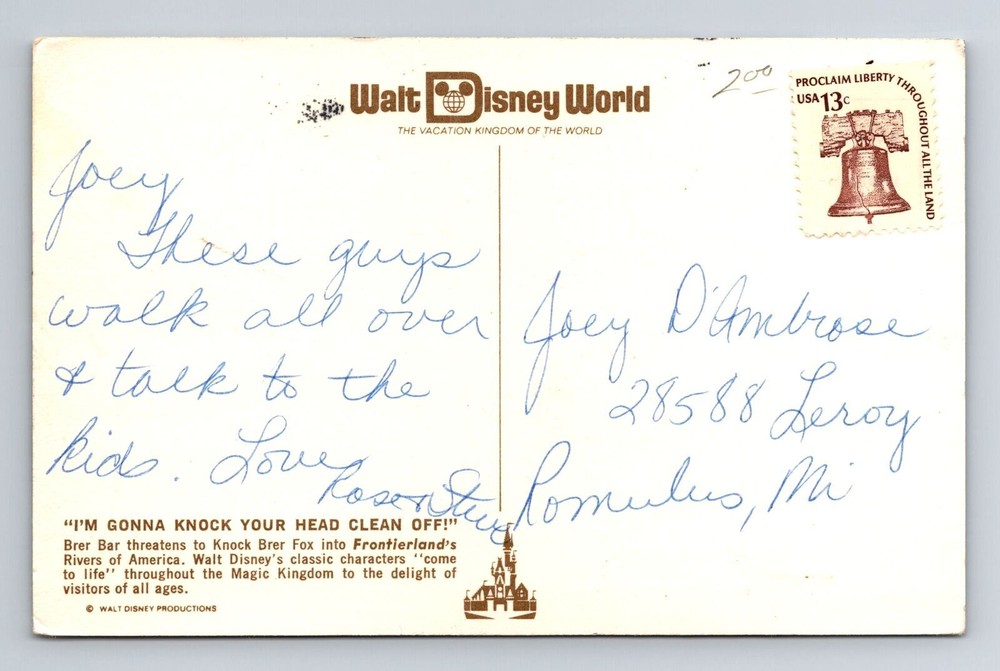 Walt Disney World
THE VACATION KINGDOM OF THE WORLD
200
PROCLAIM LIBERTY THROUGHOUT ALL THE LAND
USA 13c
Joey
These guys
walk all over
& talk to the
kids. Love
Rose & Steve
"I'M GONNA KNOCK YOUR HEAD CLEAN OFF!"
Brer Bar threatens to Knock Brer Fox into Frontierland's
Rivers of America. Walt Disney's classic characters "come
to life" throughout the Magic Kingdom to the delight of
visitors of all ages.
© WALT DISNEY PRODUCTIONS
Joey D'Ambrose
28588 Leroy
Romulus, Mi